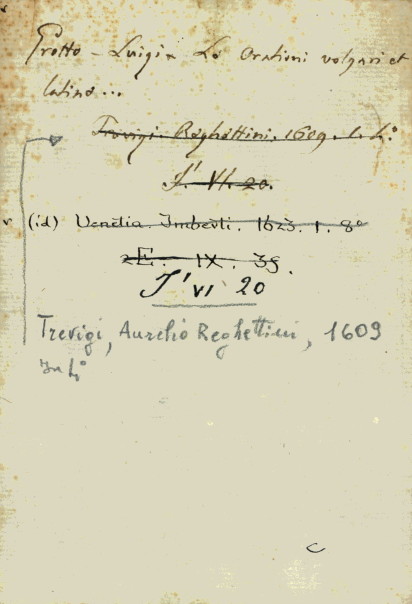 Grotto - Luigi - Le Orationi volgari et
latine...
Trevigi. Reghettini. 1609. 1. 4.°
I' VI. 20.
(id) Venetia. Imberti. 1623. 1. 8°
2E. IX. 35.
I' VI 20
Trevigi, Aurelio Reghettini, 1609
In 4°
C